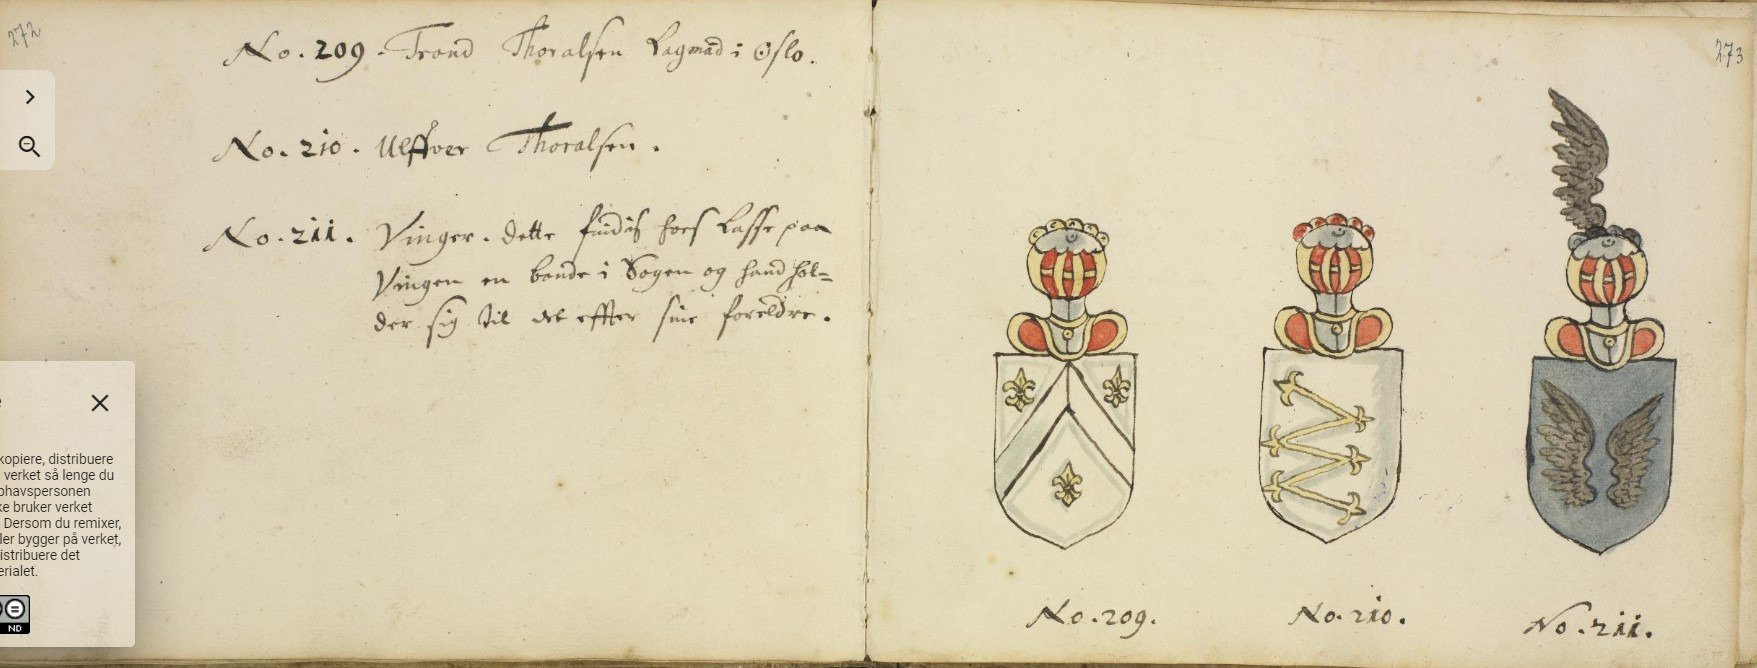 272
No. 209. Trond Thoralsen Lagmād i Oslo.
No. 210. Ulffver Thoralsen.
No. 211. Vinger. dette findis hoes Lasse paa
Vingen en bonde i Sogen og hand hol=
der sig til det effter sine foreldre.
kopiere, distribuere
verket så lenge du
phavspersonen
ke bruker verket
Dersom du remixer,
ler bygger på verket,
istribuere det
erialet.
ND
273
No. 209.
No. 210.
No. 211.